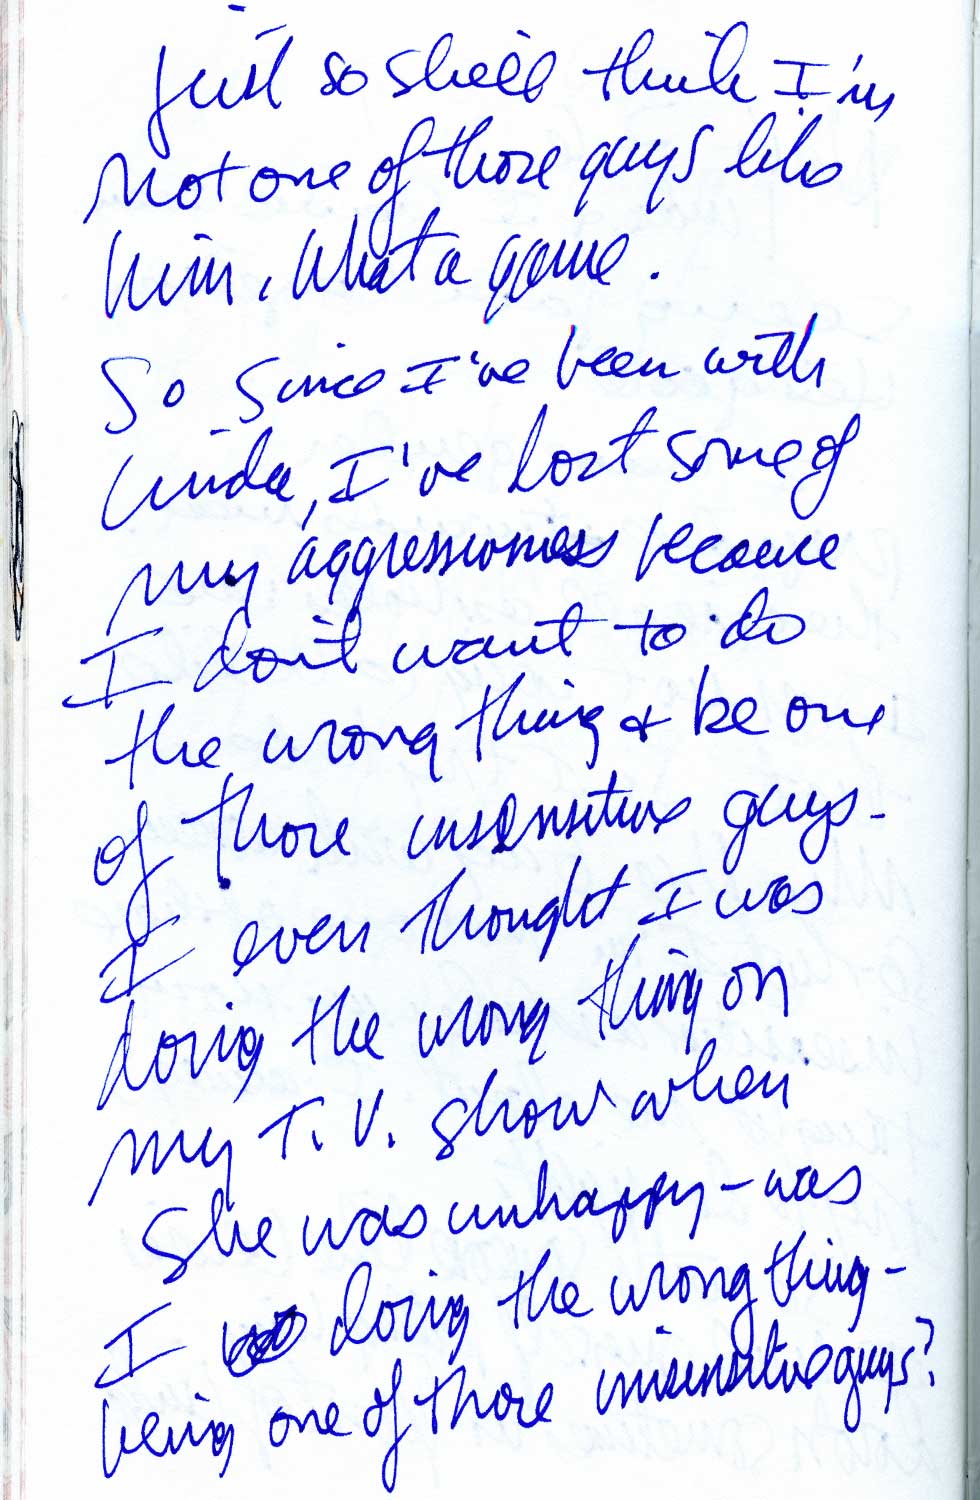 just so she'll think I'm
not one of those guys like
him. What a game.
So since I've been with
Linda, I've lost some of
my aggressioness because
I don't want to do
the wrong thing & be one
of those insensitive guys -
I even thought I was
doing the wrong thing on
my T.V. show when
She was unhappy - was
I doing the wrong thing -
being one of those insensitive guys?